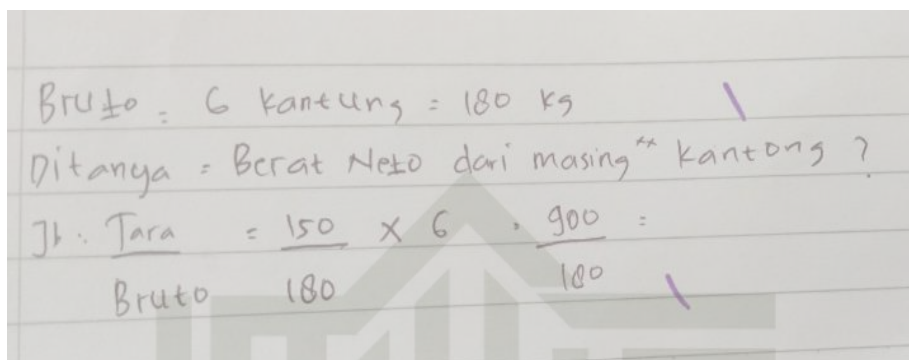 Bruto = 6 Kantung = 180 Kg
Ditanya = Berat Neto dari masing" Kantong ?
Jb : Tara = 150 x 6 = 900 =
Bruto 180 180